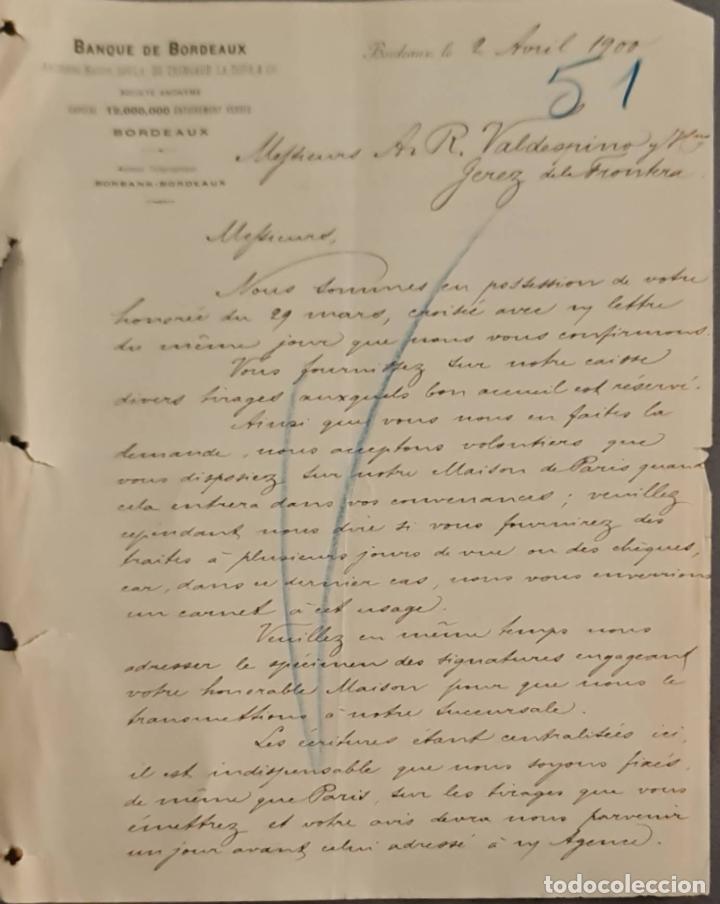 BANQUE DE BORDEAUX
SOCIÉTÉ ANONYME
CAPITAL 12,000,000 ENTIÈREMENT VERSÉS
BORDEAUX
BORBANK-BORDEAUX
Bordeaux, le 2 Avril 1900
51
Messieurs A. R. Valdespino y
Jerez de la Frontera
Messieurs,
Nous sommes en possession de votre
honorée du 29 mars, croisée avec n/ lettre
du même jour que nous vous confirmons.
Vous fournissez sur notre caisse
divers tirages auxquels bon accueil est réservé.
Ainsi que vous nous en faites la
demande, nous acceptons volontiers que
vous disposiez sur notre Maison de Paris quand
cela entrera dans vos convenances ; veuillez
cependant nous dire si vous fournirez des
traites à plusieurs jours de vue ou des chèques,
car, dans ce dernier cas, nous vous enverrions
un carnet à cet usage.
Veuillez en même temps nous
adresser le spécimen des signatures engageant
votre honorable Maison pour que nous le
transmettions à notre succursale.
Les écritures étant centralisées ici,
il est indispensable que nous soyons fixés,
de même que Paris, sur les tirages que vous
émettrez et votre avis devra nous parvenir
un jour avant celui adressé à n/ Agence.
todocoleccion